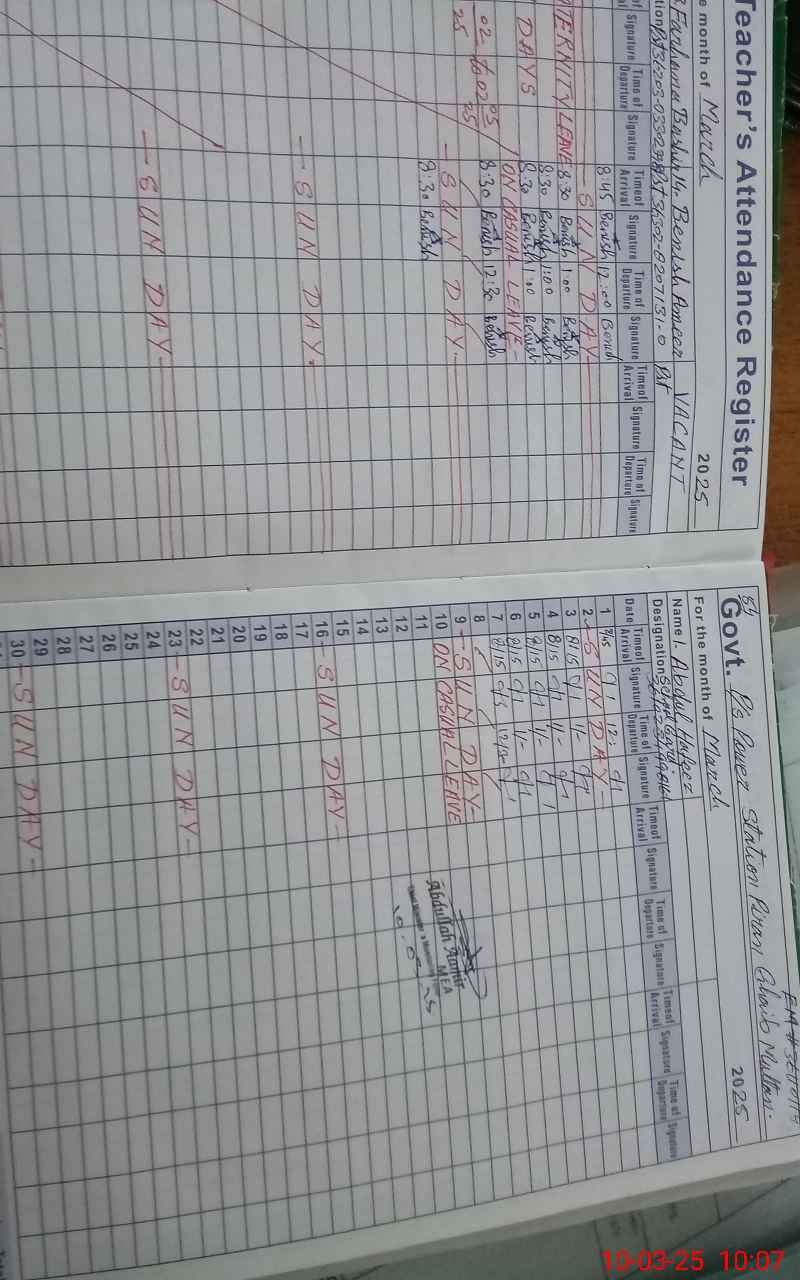 Teacher's Attendance Register
e month of March 2025
Benish Ameer VACANT
Pst
Signature Time of Departure Signature Time of Arrival Signature Time of Departure Signature Time of Arrival Signature Time of Departure Signature
8:45 Benish 12:00 Benish
- SUN DAY -
MATERNITY LEAVE 8:30 Benish 1:00 Benish
8:30 Benish 1:00 Benish
DAYS 8:30 Benish 1:00 Benish
ON CASUAL LEAVE -
02 to 02 05
25 25
8:30 Benish 12:30 Benish
- SUN DAY -
8:30 Benish
- SUN DAY -
- SUN DAY -
54
Govt. P/s Power Station Piran Ghaib Multan.
For the month of March 2025
Name 1. Abdul Hafeez
Designation School Guard
Date Time of Arrival Signature Time of Departure Signature Time of Arrival Signature Time of Departure Signature Time of Arrival Signature Time of Departure Signature
1
2 - SUN DAY -
3 8/15 1/-
4 8/15 1/-
5 8/15 1/-
6 8/15 1/-
7 8/15
8
9 - SUN DAY -
10 ON CASUAL LEAVE
11
12
13
14
15
16 - SUN DAY -
17
18
19
20
21
22
23 - SUN DAY -
24
25
26
27
28
29
30 - SUN DAY -
Abdullah Aamir
MEA
10-03-25 10:07